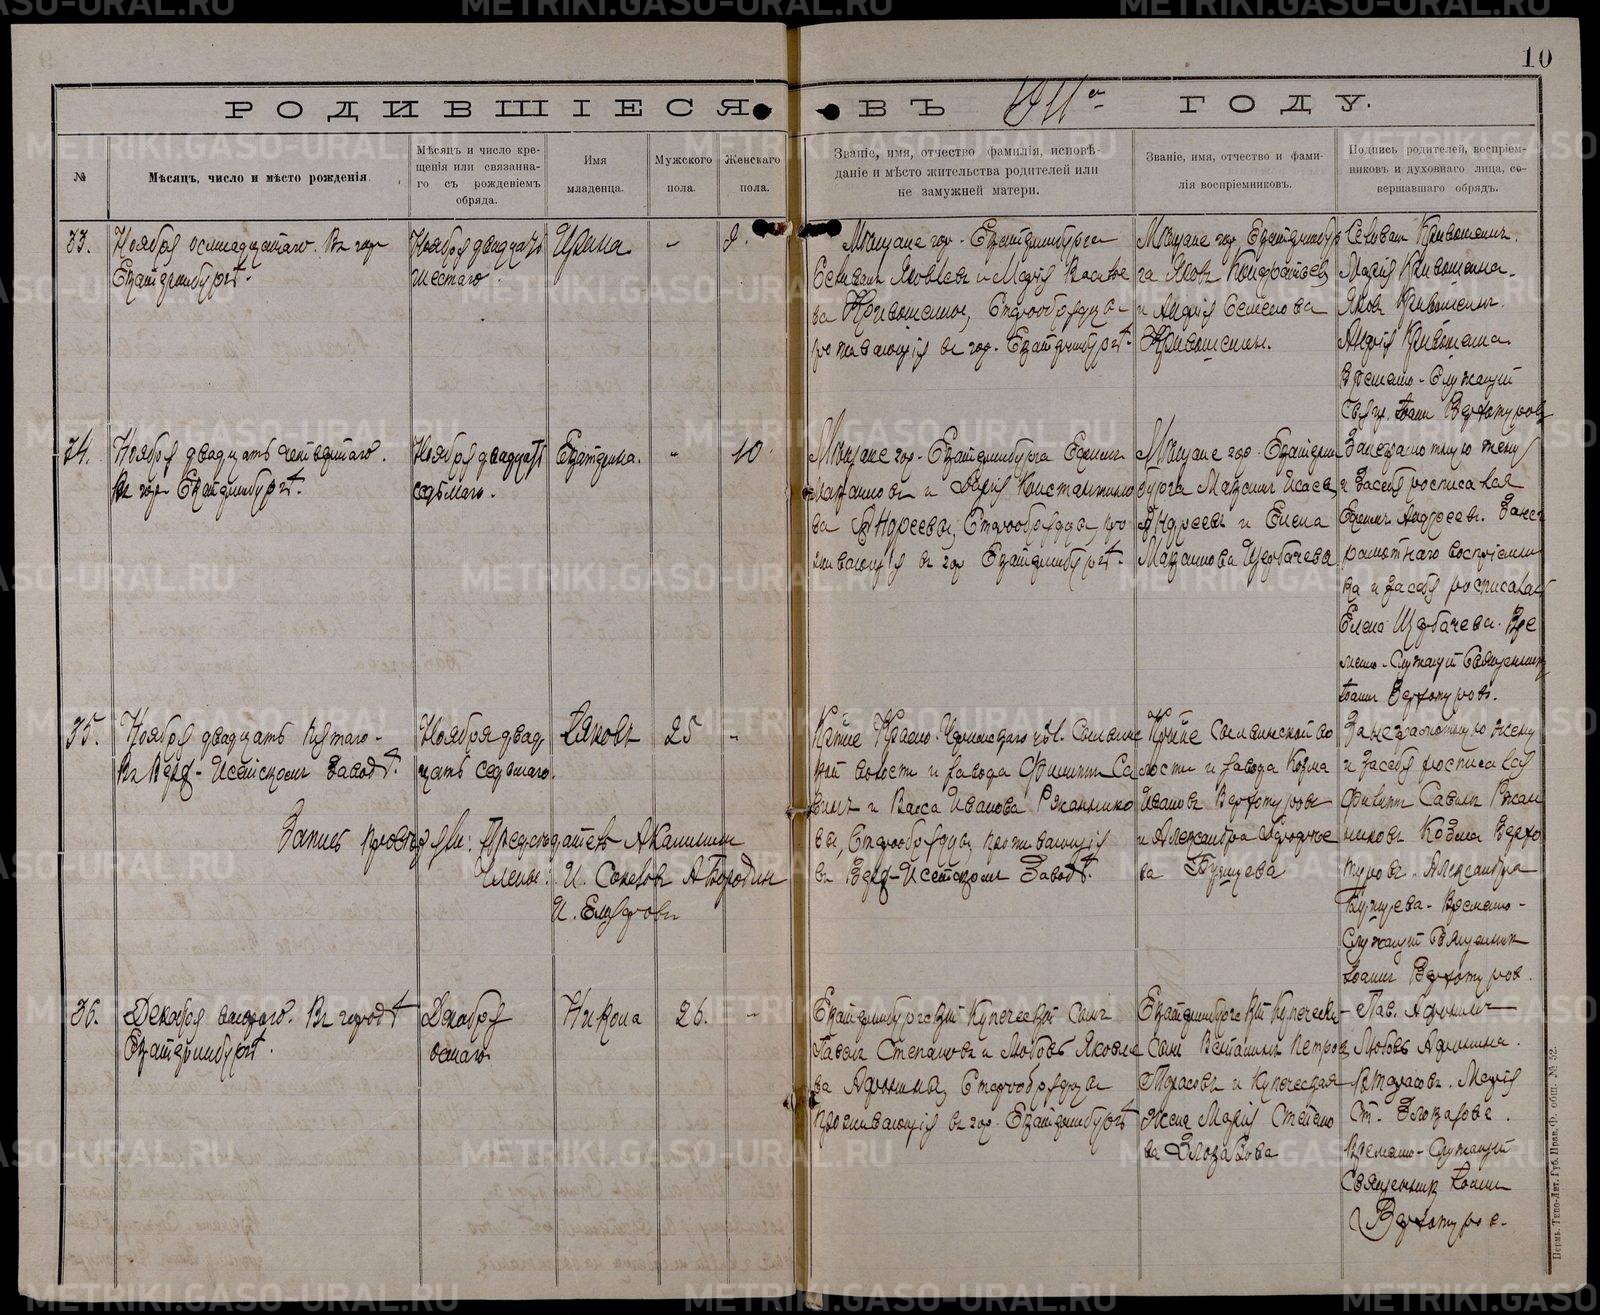 10
РОДИВШІЕСЯ ВЪ 1911 ГОДУ.
№
Мѣсяцъ, число и мѣсто рожденія.
Мѣсяцъ и число кре-
щенія или связанна-
го съ рожденіемъ
обряда.
Имя
младенца.
Мужского
пола.
Женскаго
пола.
Званіе, имя, отчество фамилія, исповѣ-
даніе и мѣсто жительства родителей или
не замужней матери.
Званіе, имя, отчество и фами-
лія воспріемниковъ.
Подпись родителей, воспріем-
никовъ и духовнаго лица, со-
вершавшаго обрядъ.
33.
Ноября осмнадцатаго. Въ гор.
Екатеринбургѣ.
Ноября двадцать
шестаго
Ирина
9.
Мѣщане гор. Екатеринбурга
Селиванъ Яковлевъ и Марія
Кривошеины, Старообрядцы
проживающія въ гор. Екатеринбургѣ.
Мѣщане гор. Екатеринбур
га Яковъ
и Семенова
Кривошеины.
Селиванъ Кривошеинъ.
Марія Кривошеина.
Яковъ Кривошеинъ.
Кривошеина.
Временно-Служащій
Свящ. Іоаннъ Верхотуровъ
34.
Ноября двадцать четвертаго.
Въ гор. Екатеринбургѣ.
Ноября двадцать
седьмаго.
Екатерина.
10.
Мѣщане гор. Екатеринбурга
и Дарія Константино
ва Андреевы, Старообрядцы, про
живающія въ гор. Екатеринбургѣ.
Мѣщане гор. Екатерин
бурга
Андреевъ и Елена
Щербачева
За неграмотную жену
и за себя росписался
Андреевъ. За нег
рамотнаго воспріемни
ка и за себя росписалась
Елена Щербачева. Вре
менно-Служащій Священникъ
Іоаннъ Верхотуровъ.
35.
Ноября двадцать пятаго.
Въ Верх-Исетскомъ Заводѣ.
Ноября двад
цать седьмаго.
Яковъ
25
Кр-не Красно-
волости и завода Филиппъ Са
винъ и Васса Иванова
вы, Старообрядцы, проживающія
въ Верх-Исетскомъ Заводѣ.
Кр-не Сылвинской во
лости и завода Козма
Ивановъ Верхотуровъ
и Александра
За неграмотную жену
и за себя росписался
Филиппъ Савинъ
Козма Верхо
туровъ. Александра
Временно-
Служащій Священникъ
Іоаннъ Верхотуровъ.
Запись провѣряли: Предсѣдатель А Калинин
Члены: И. Соколов А Бородин
И.
36.
Декабря втораго. Въ городѣ
Екатеринбургѣ.
Декабря
осмаго
Никола
26.
Екатеринбургскій Купеческій Сынъ
Павелъ Степановъ и Любовь Яковле
ва Афонины, Старообрядцы
проживающія въ гор. Екатеринбургѣ
Екатеринбургскій Купечески
Сынъ Веніаминъ Петров
Тарасовъ и Купеческая
жена Марія Степано
ва Злоказова
Пав. Афонинъ
Любовь Афонина.
В Тарасовъ. Марія
Ст. Злоказова.
Временно-Служащій
Священникъ Іоаннъ
Верхотуровъ.
Пермь. Типо-Лит. Губ. Прав. Ф. общ. № 52.
METRIKI.GASO-URAL.RU